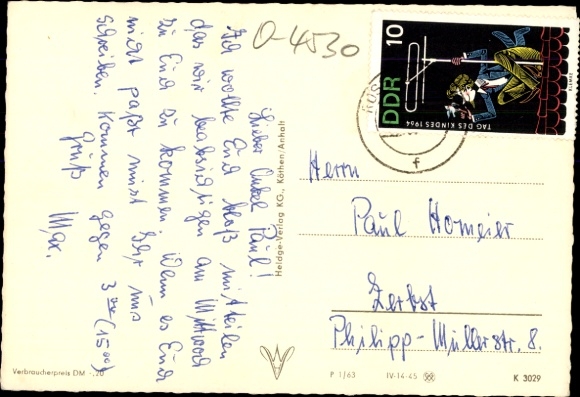 O-4530
Lieber Onkel Paul!
Ich wollte Euch bloß mitteilen
das wir beabsichtigen am Mittwoch
zu Euch zu kommen. Wenn es Euch
nicht paßt müßt Ihr uns
schreiben. Kommen gegen 3 Uhr (15 00)
Gruß
Max.
Heldge-Verlag KG., Köthen/Anhalt
DDR 10
TAG DES KINDES 1964
f
Herrn
Paul Homeier
Zerbst
Philipp-Müllerstr. 8.
Verbraucherpreis DM -.20
P 1/63 IV-14-45 K 3029